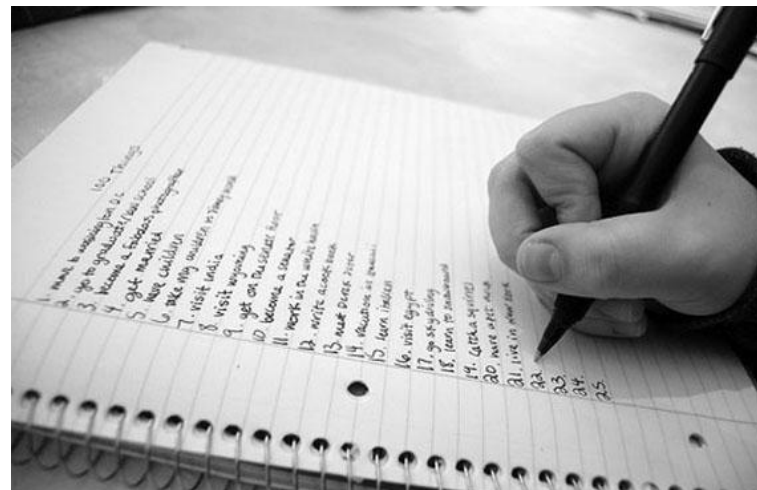 100 Things
1. move to washington D.C.
2. go to graduate/law school
3. become a fabulous photographer
4. get married
5. have children
6. take my children to disney world
7. visit India
8. visit wyoming
9. get on the senate floor
10. become a senator
11. work in the white house
12. write a cook book
13. meet Derek Jeter
14. vacation in
15. learn
16. visit Egypt
17. go skydiving
18. learn to snowboard
19. catch a squirrel
20. have a pet
21. live in New York
22.
23.
24.
25.